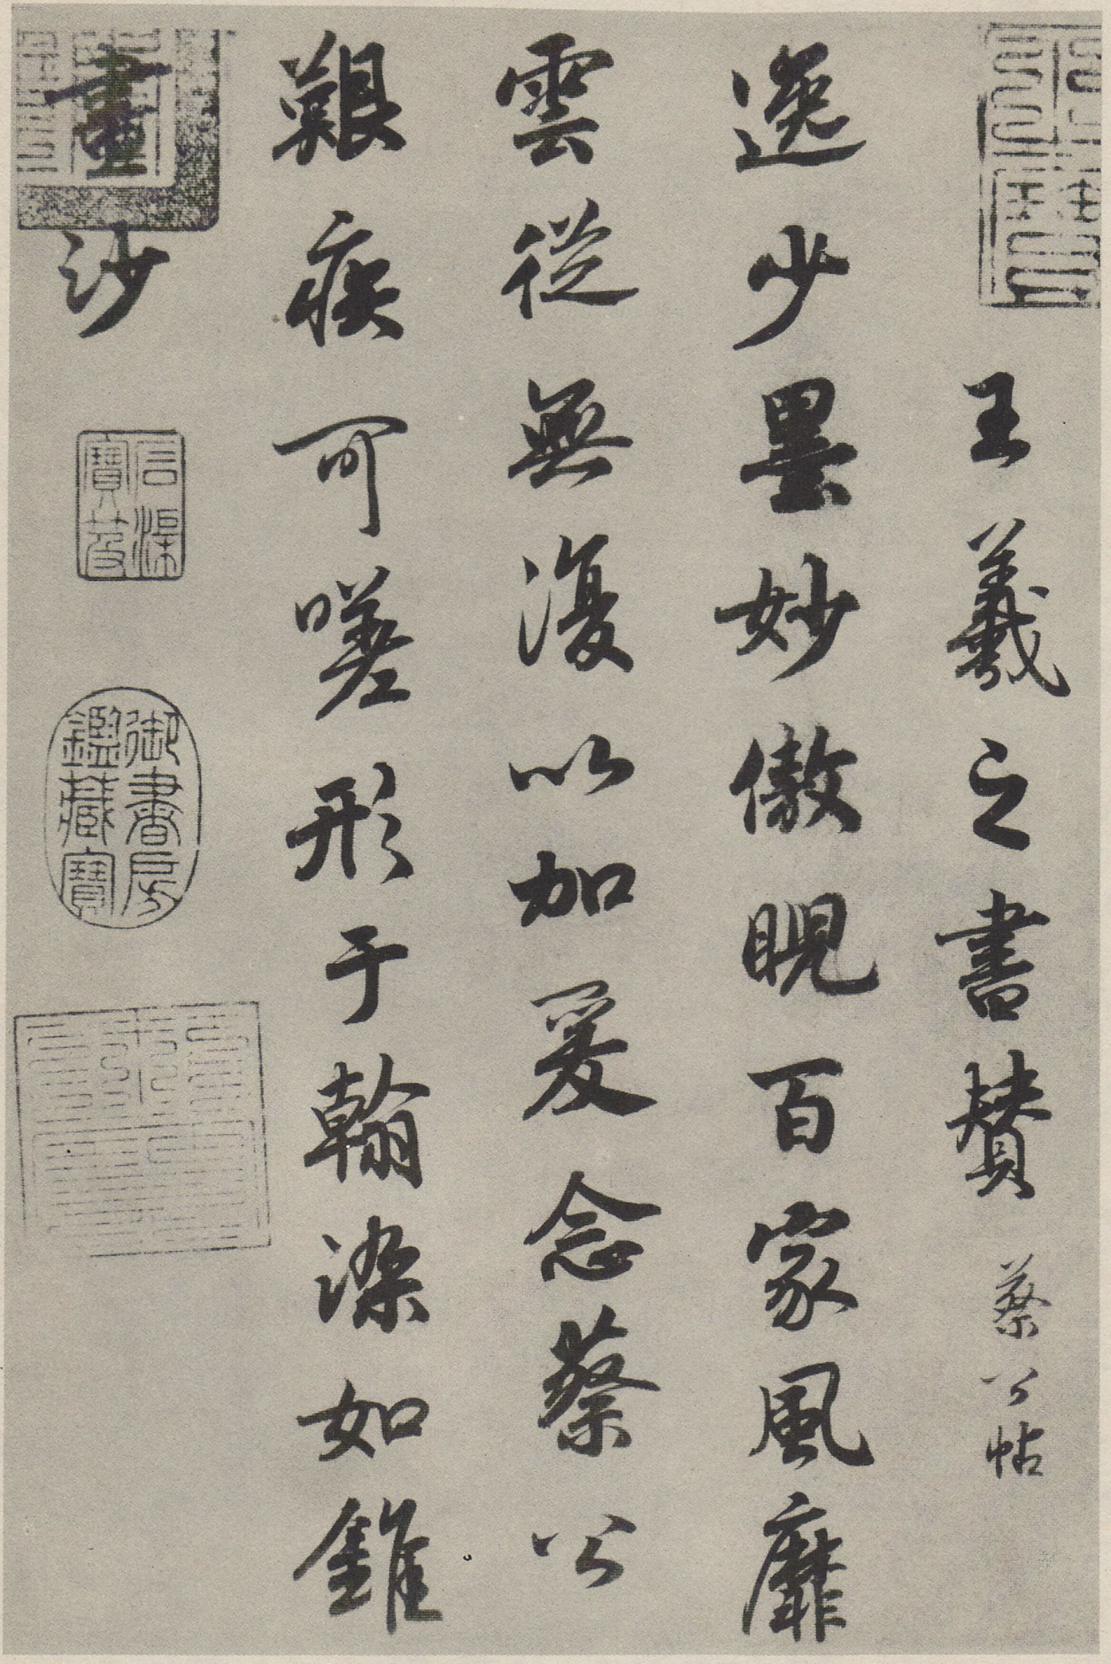 王羲之書贊 蔡公帖
逸少曇妙傲睨百家風靡
雲從無復以加爰念蔡公
艱疾可嗟形于翰染如錐
畫沙
御書房鑑藏寶